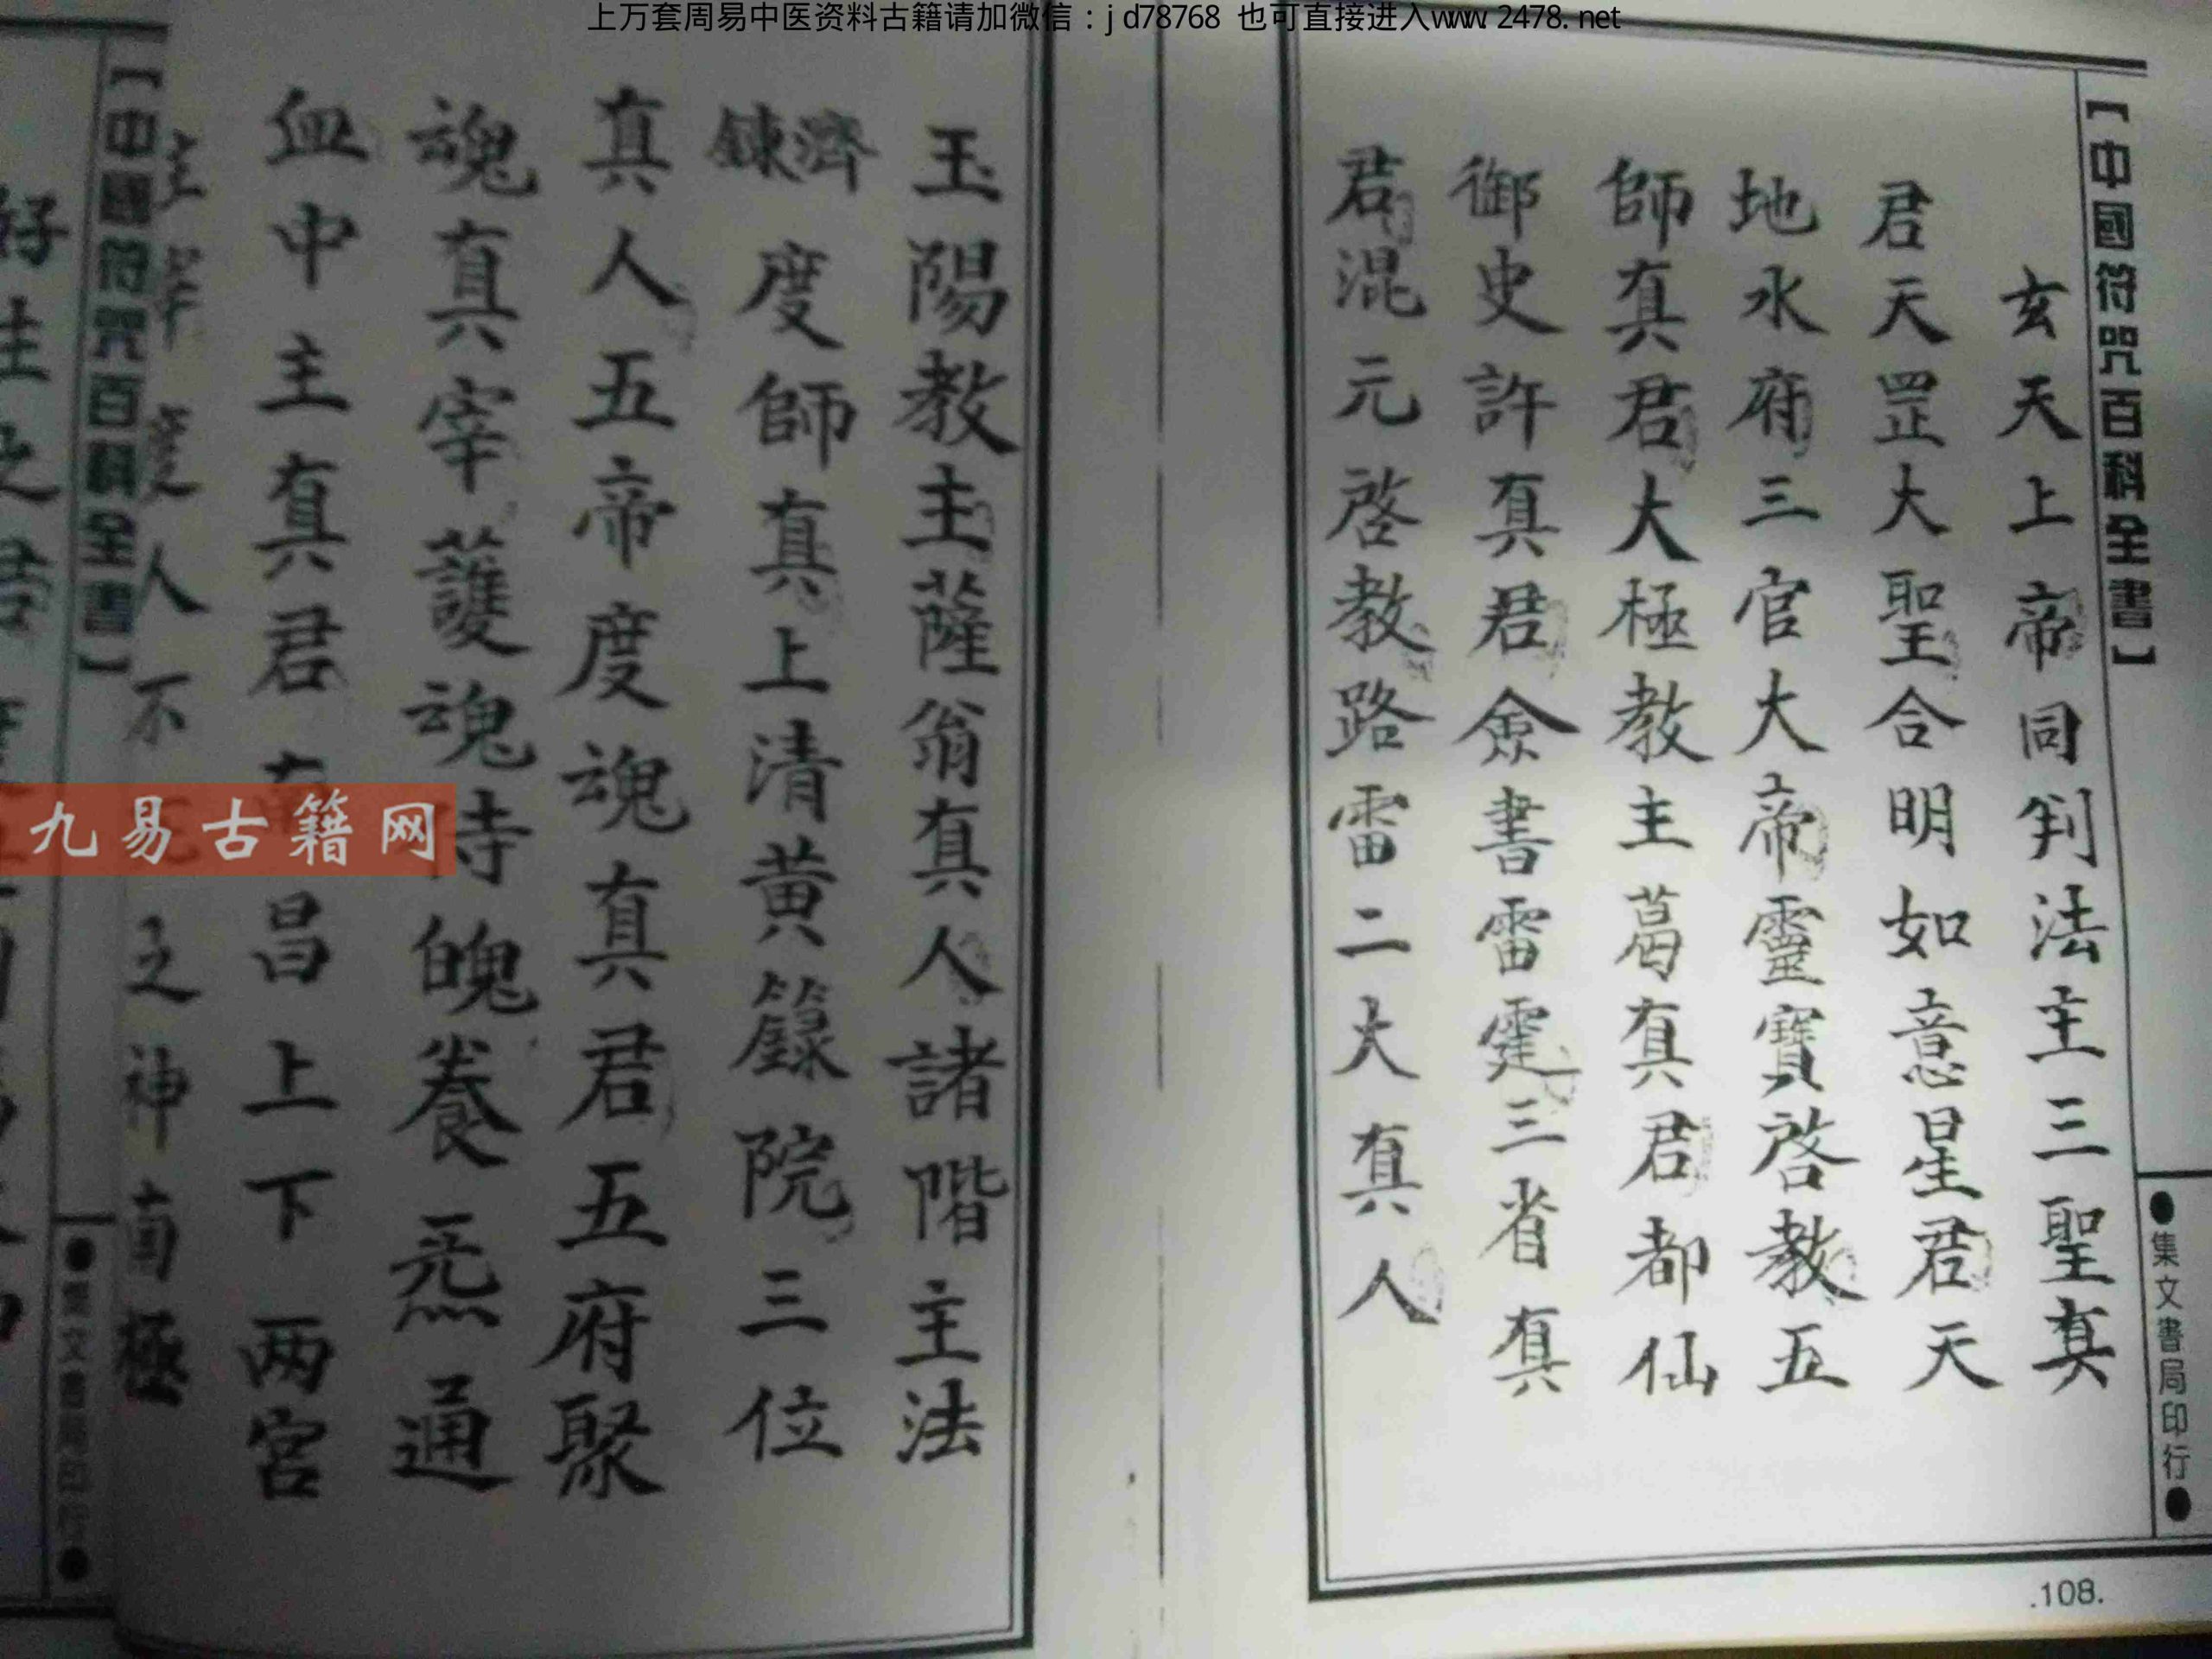 上万套周易中医资料古籍请加微信：jd78768 也可直接进入www.2478.net
【中國符咒百科全書】
●集文書局印行●
玄天上帝同判法主三聖真
君天罡大聖合明如意星君天
地水府三官大帝靈寶啓教五
師真君大極教主葛真君都仙
御史許真君僉書雷霆三省真
君混元啓教路雷二大真人
.108.
玉陽教主薩翁真人諸階主法
濟鍊度師真上清黃籙院三位
真人五帝度魂真君五府聚
魂真宰護魂侍魄養炁通
血中主真君南昌上下两宮
主宰度人不死之神南極
九易古籍网
【中國符咒百科全書】
●集文書局印行●
好生之君